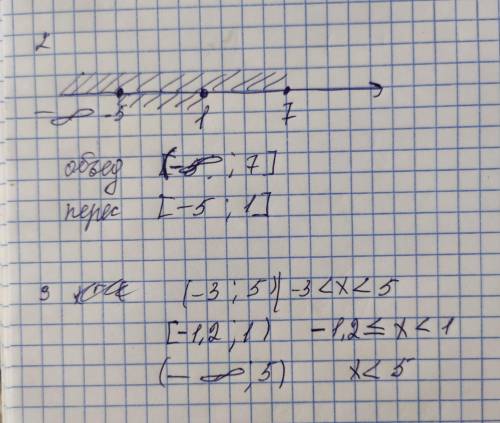 2
-∞ -5 1 7
объед (-∞; 7]
перес [-5; 1]
3 (-3; 5) -3<x<5
[-1,2; 1) -1,2≤x<1
(-∞; 5) x<5